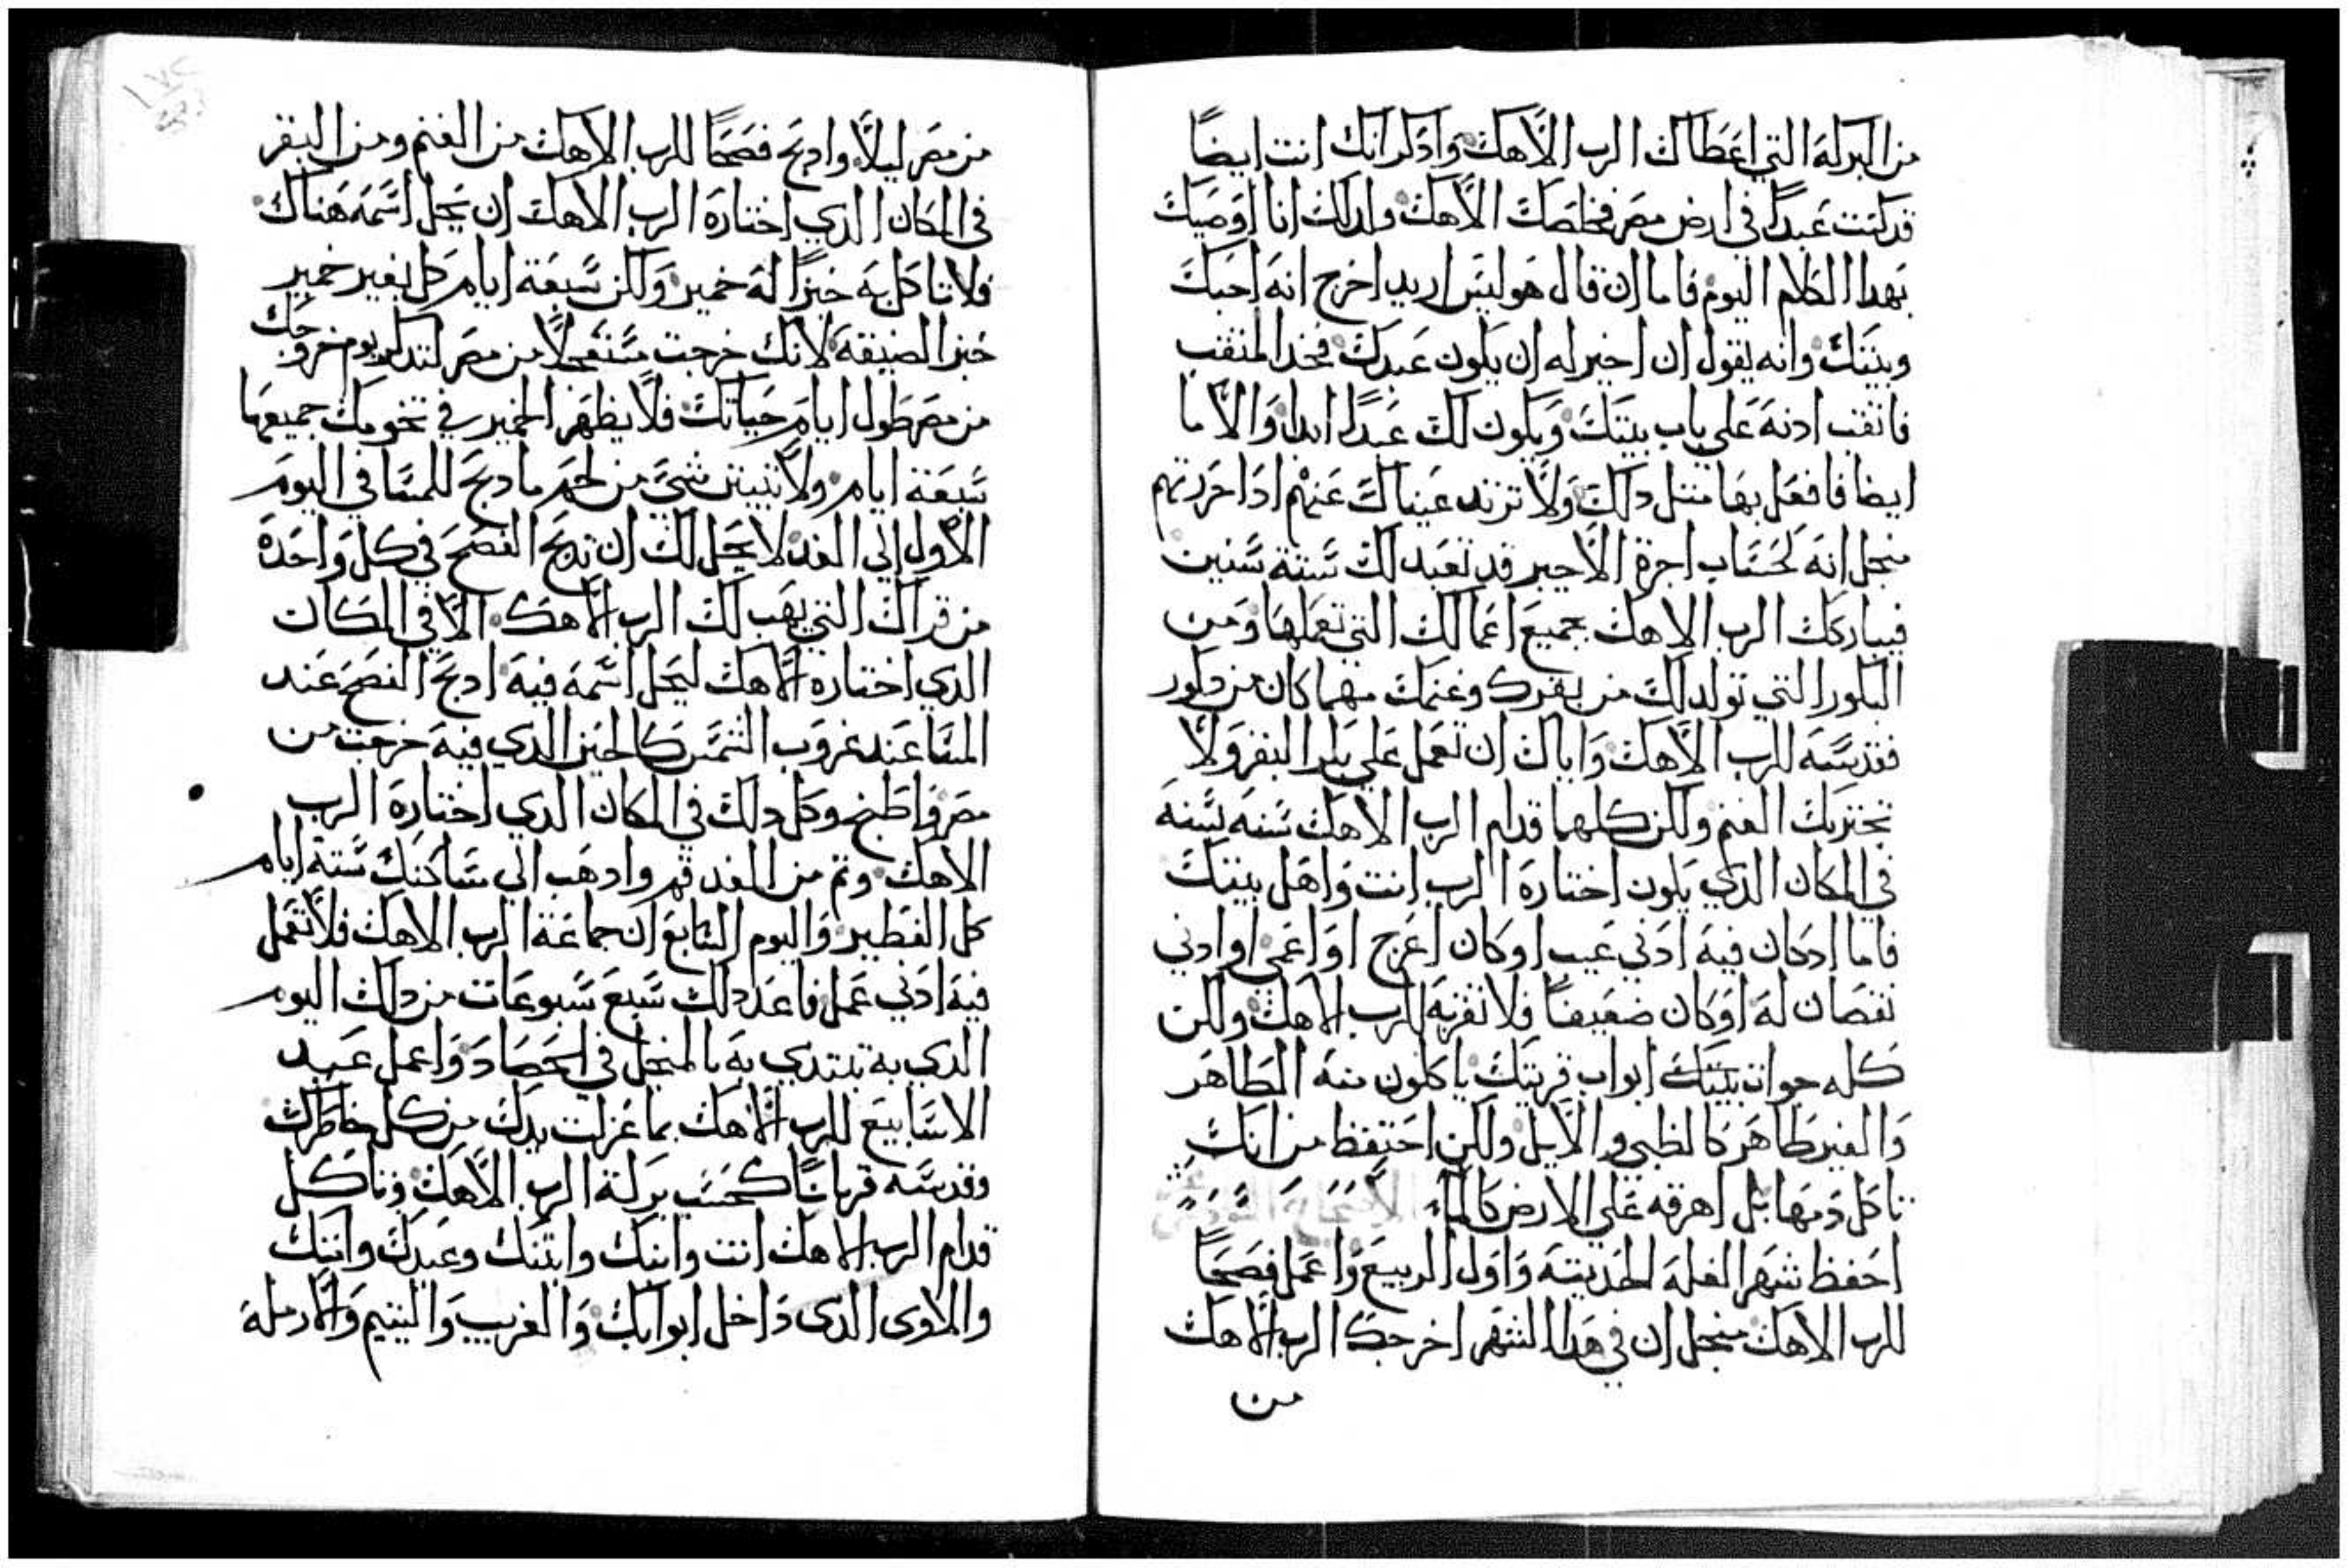 من البركة التي اعطاك الرب الاهك وادكر انك انت ايضًا
قد كنت عبدًا في ارض مصر فخلصك الاهك ولدلك انا اوصيك
بهدا الكلام اليوم فاما ان قال هو ليس اريد اخرج انه احبك
وبيتك وانه يقول ان اخير له ان يكون عبدك فخد المثقب
فاتقب ادنه علي باب بيتك ويكون لك عبدًا ابدا والاما
ايضا فافعل بها متل دلك ولا تزند عيناك عنهم ادا حررتهم
منجل انه كحساب اجرة الاجير قد تعبد لك ستة سنين
فيباركك الرب الاهك بجميع اعمالك التي تعملها ومن
البكور التي تولد لك من بقرك وغنمك مهما كان من دكور
فقدسه للرب الاهك واياك ان تعمل علي بكر البقر ولا
تجتز بك الغنم ولكن كلهما قدام الرب الاهك سنه بسنه
في المكان الدي يكون اختاره الرب انت واهل بيتك
فاما ادكان فيه ادني عيب او كان اعرج او اعمي او ادني
نقصان له او كان ضعيفًا فلا تقربه للرب الاهك ولكن
كله جوات بيتك ابواب قريتك ياكلون منه الطاهر
والغير طاهر كالظبي والايل ولكن احتفظ من انك
تاكل دمها بل اهرقه علي الارض كالماء
احفظ شهر الغلة الحديثة واول الربيع واعمل فصحًا
للرب الاهك منجل ان في هدا الشهر اخرجك الرب الاهك
من
من مصر ليلًا وادبح فصحًا للرب الاهك من الغنم ومن البقر
في المكان الدي اختاره الرب الاهك ان يحل اسمه هناك
فلا تاكل به خبزًا له خمير ولكن سبعة ايام كل بغير خمير
خبز الضيقة لانك خرجت مستعجلًا من مصر لتدكر يوم خروجك
من مصر طول ايام حياتك فلا يظهر الخمير في تخومك جميعها
سبعة ايام ولا تبيتن شي من لحم مادبح للمسا في اليوم
الاول الي الغد لا يحل لك ان تدبح الفصح في كل واحدة
من قراك التي يهب لك الرب الاهك الا في المكان
الدي اختاره الاهك ليحل اسمه فيه ادبح الفصح عند
المسا عند غروب الشمس كالحين الدي فيه خرجت من
مصر واطبخ وكل دلك في المكان الدي اختاره الرب
الاهك وتم من الغد قم وادهب الي مساكنك ستة ايام
كل الفطير واليوم السابع ان جماعة الرب الاهك فلا تعمل
فيه ادني عمل فاعد دلك سبع سبوعات من دلك اليوم
الدي به تبتدي به بالمنجل في الحصاد واعمل عيد
الاسابيع للرب الاهك بما عزلت يدك من كل خاطرك
وقدسه قربانًا كحسب بركة الرب الاهك وتاكل
قدام الرب الاهك انت وابنك وابنتك وعبدك وامتك
واللاوى الدى داخل ابوابك والغريب واليتيم والارملة